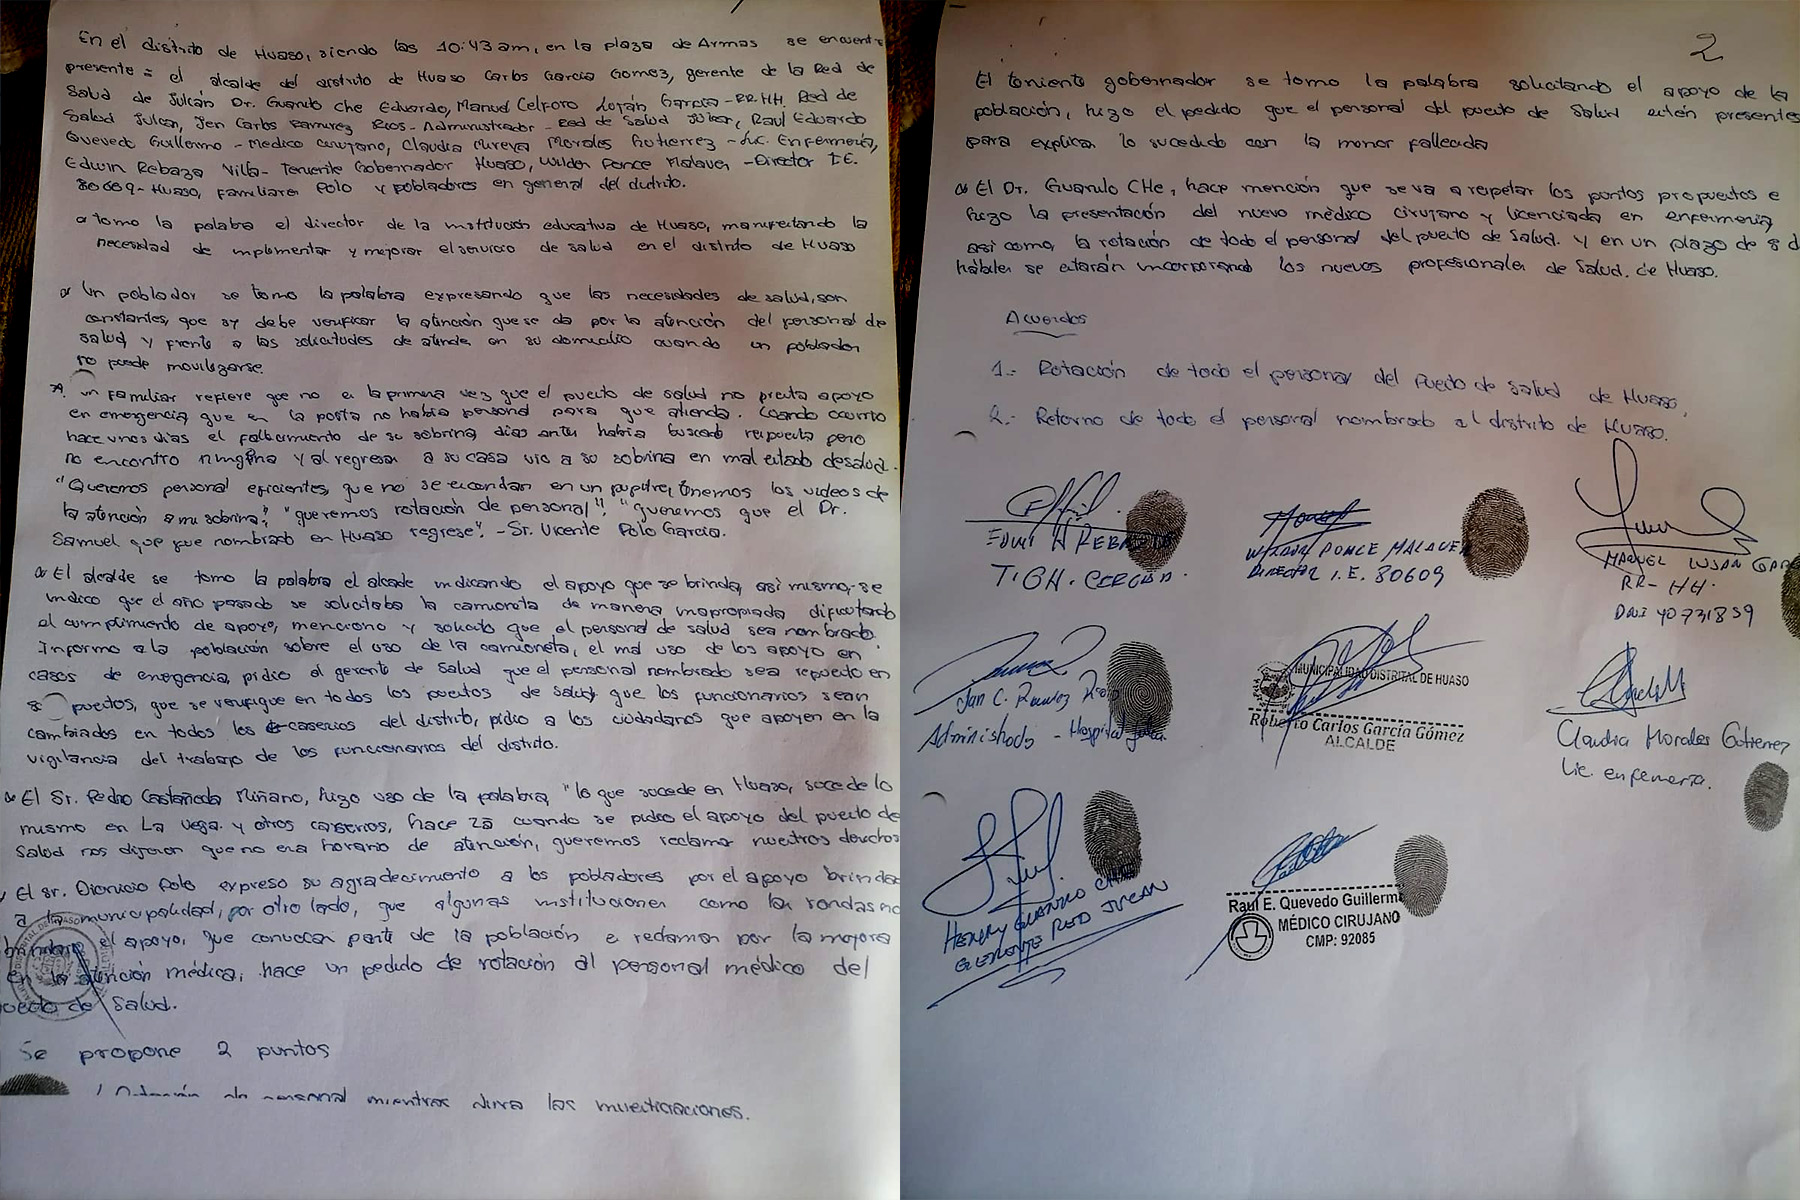 En el distrito de Huaso, siendo las 10:43 am, en la plaza de Armas se encuentr
presente = el alcalde del distrito de Huaso Carlos García Gomez, gerente de la Red de
Salud de Julcán Dr. Guanilo Che Eduardo, Manuel Celforo Luján García - RR.HH. Red de
Salud Julcan, Jen Carlos Ramirez Rios - Administrador - Red de Salud Julcan, Raul Eduardo
Quevedo Guillermo - Medico cirujano, Claudia Mireya Morales Gutierrez - Lic. Enfermería,
Edwin Rebaza Villa - Teniente Gobernador Huaso, Wilder Ponce Malaver - Director I.E.
80609 - Huaso, Familiares Polo y pobladores en general del distrito.
a tomo la palabra el director de la institución educativa de Huaso, manifestando la
necesidad de implementar y mejorar el servicio de salud en el distrito de Huaso
Un poblador se tomo la palabra expresando que las necesidades de salud, son
constantes, que sy debe verificar la atención que se da por la atención del personal de
salud y frente a las solicitudes de atender en su domicilio cuando un poblador
no puede movilizarse.
un familiar refiere que no es la primera vez que el puesto de salud no presta apoyo
en emergencia que en la posta no había personal para que atienda. Cuando ocurrio
hace unos días el fallecimiento de su sobrina días antes había buscado respuesta pero
no encontro ninguna y al regresar a su casa vio a su sobrina en mal estado de salud.
"Queremos personal eficientes, que no se escondan en un pupitre, tenemos los videos de
la atención a mi sobrina", "queremos rotación de personal", "queremos que el Dr.
Samuel que fue nombrado en Huaso regrese". - Sr. Vicente Polo García.
El alcalde se tomo la palabra el alcade indicando el apoyo que se brinda, asi mismo, se
indico que el año pasado se solicitaba la camioneta de manera inapropiada dificultando
el cumplimiento de apoyo, menciono y solicito que el personal de salud sea nombrado.
Informo a la población sobre el uso de la camioneta, el mal uso de los apoyo en
casos de emergencia, pidio al gerente de Salud que el personal nombrado sea repuesto en
s puestos, que se verifique en todos los puestos de Salud, que los funcionarios sean
cambiados en todos los caserios del distrito, pidio a los ciudadanos que apoyen en la
vigilancia del trabajo de los funcionarios del distrito.
El Sr. Pedro Castañeda Miñano, hizo uso de la palabra, "lo que sucede en Huaso, sucede lo
mismo en La Vega y otros caserios, hace 25 cuando se pidio el apoyo del puesto de
Salud nos dijeron que no era horario de atención, queremos reclamar nuestros derechos
El sr. Dionicio Polo expreso su agradecimiento a los pobladores por el apoyo brindad
a la municipalidad, por otro lado, que algunas instituciones como las rondas no
brindaro el apoyo, que convocan parte de la población e reclaman por la mejora
en la atención médica, hace un pedido de rotación al personal médico del
puesto de Salud.
Se propone 2 puntos
1 Rotación de personal mientras dura las investigaciones.
2
El teniente gobernador se tomo la palabra solicitando el apoyo de la
población, hizo el pedido que el personal del puesto de Salud estén presentes
para explicar lo sucedido con la menor fallecida
El Dr. Guanilo CHe, hace mención que se va a respetar los puntos propuestos e
hizo la presentación del nuevo médico cirujano y licenciada en enfermería,
asi como la rotación de todo el personal del puesto de Salud. y en un plazo de 8 d
hábiles se estarán incorporando los nuevos profesionales de Salud. de Huaso.
Acuerdos
1.- Rotación de todo el personal del Puesto de Salud de Huaso.
2.- Retorno de todo el personal nombrado al distrito de Huaso.
EDWIN REBAZA
WILDER PONCE MALAVER
DIRECTOR I.E. 80609
MANUEL LUJAN GARC
RR-HH.
DNI 40731859
Jan C. Ramirez Rios
Administrado - Hospital Julcan
MUNICIPALIDAD DISTRITAL DE HUASO
Roberto Carlos García Gómez
ALCALDE
Claudia Morales Gutierrez
Lic. enfermería.
HENRY GUANILO CHE
GERENTE RED JULCAN
Raul E. Quevedo Guillermo
MÉDICO CIRUJANO
CMP: 92085